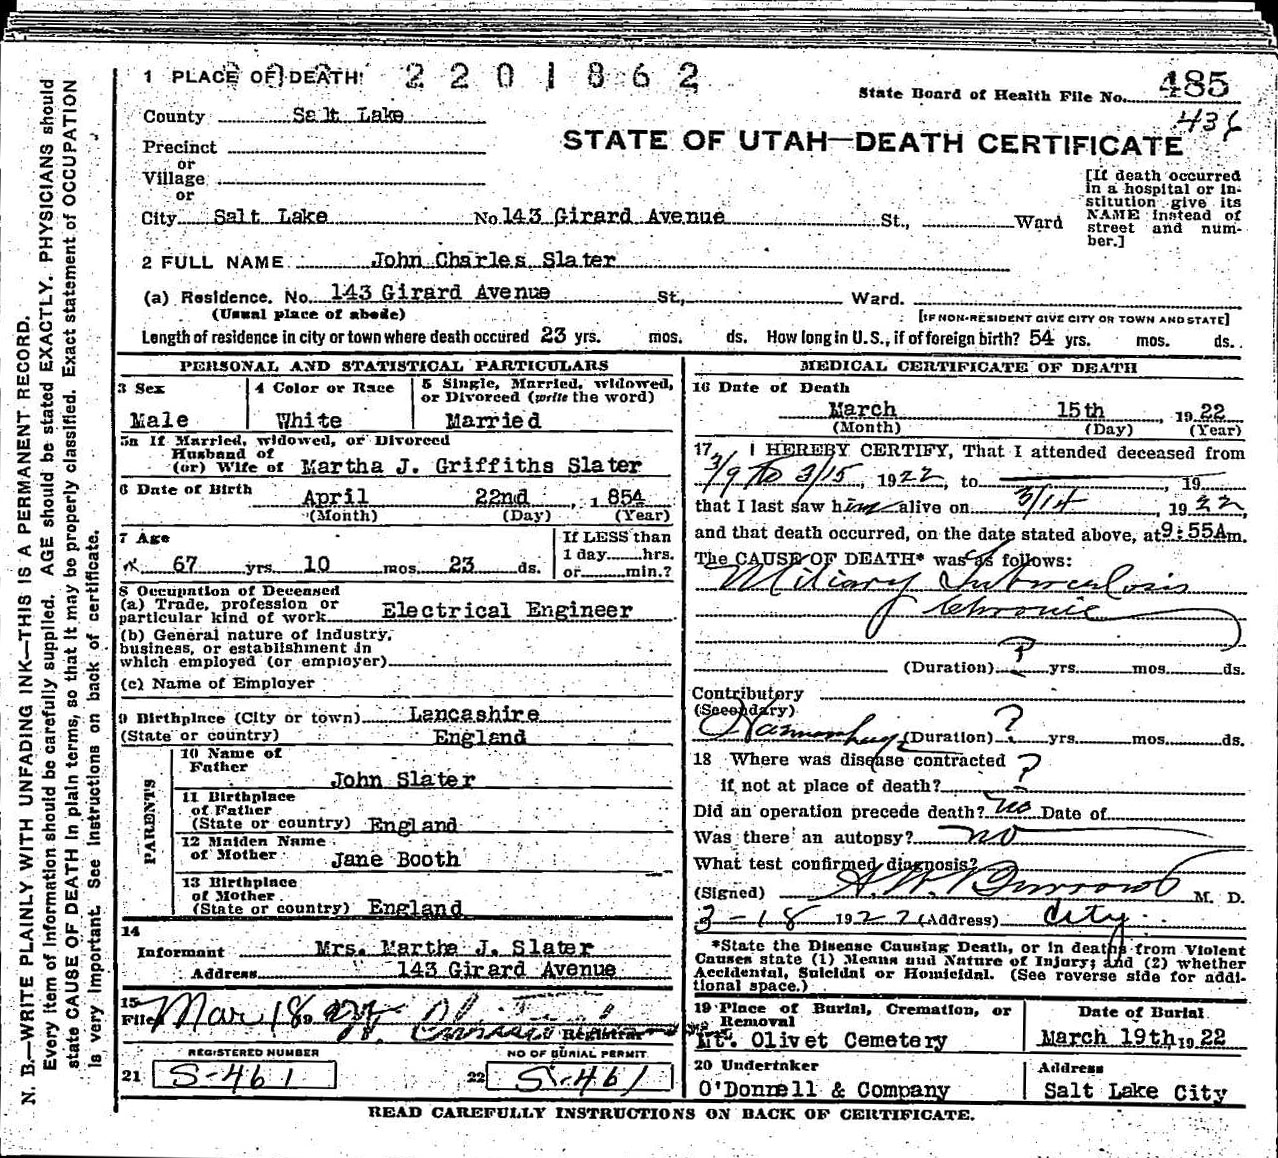 1 PLACE OF DEATH! 2201862
State Board of Health File No. 485
County Salt Lake
STATE OF UTAH—DEATH CERTIFICATE
Precinct
or
Village
or
City Salt Lake No. 143 Girard Avenue St., Ward
[If death occurred
in a hospital or in-
stitution give its
NAME instead of
street and num-
ber.]
2 FULL NAME John Charles Slater
(a) Residence. No. 143 Girard Avenue St., Ward.
(Usual place of abode) [IF NON-RESIDENT GIVE CITY OR TOWN AND STATE]
Length of residence in city or town where death occured 23 yrs. mos. ds. How long in U.S., if of foreign birth? 54 yrs. mos. ds.
PERSONAL AND STATISTICAL PARTICULARS
3 Sex
Male
4 Color or Race
White
5 Single, Married, widowed,
or Divorced (write the word)
Married
5a If Married, widowed, or Divorced
Husband of
(or) Wife of Martha J. Griffiths Slater
6 Date of Birth
April 22nd, 1854
(Month) (Day) (Year)
7 Age
67 yrs. 10 mos. 23 ds.
If LESS than
1 day hrs.
or min.?
8 Occupation of Deceased
(a) Trade, profession or
particular kind of work Electrical Engineer
(b) General nature of Industry,
business, or establishment in
which employed (or employer)
(c) Name of Employer
9 Birthplace (City or town) Lancashire
(State or country) England
PARENTS
10 Name of
Father
John Slater
11 Birthplace
of Father
(State or country) England
12 Maiden Name
of Mother Jane Booth
13 Birthplace
of Mother
(State or country) England
14
Informant Mrs. Martha J. Slater
Address 143 Girard Avenue
15
Filed Mar 18 Registrar
REGISTERED NUMBER
21 S-461
NO OF BURIAL PERMIT
22 S-461
MEDICAL CERTIFICATE OF DEATH
16 Date of Death
March 15th, 1922
(Month) (Day) (Year)
17 I HEREBY CERTIFY, That I attended deceased from
3/9 to 3/15, 1922, to , 19
that I last saw him alive on 3/14, 1922,
and that death occurred, on the date stated above, at 9:55A m.
The CAUSE OF DEATH* was as follows:
Miliary Tuberculosis
Chronic
(Duration) ? yrs. mos. ds.
Contributory
(Secondary)
(Duration) ? yrs. mos. ds.
18 Where was disease contracted
if not at place of death? ?
Did an operation precede death? no Date of
Was there an autopsy? no
What test confirmed diagnosis?
(Signed) A. W. Burrows M. D.
3-18 1922 (Address) City
*State the Disease Causing Death, or in deaths from Violent
Causes state (1) Means and Nature of Injury; and (2) whether
Accidental, Suicidal or Homicidal. (See reverse side for addi-
tional space.)
19 Place of Burial, Cremation, or
Removal
Mt. Olivet Cemetery
Date of Burial
March 19th, 1922
20 Undertaker
O'Donnell & Company
Address
Salt Lake City
READ CAREFULLY INSTRUCTIONS ON BACK OF CERTIFICATE.
N. B.—WRITE PLAINLY WITH UNFADING INK—THIS IS A PERMANENT RECORD.
Every item of information should be carefully supplied. AGE should be stated EXACTLY. PHYSICIANS should
state CAUSE OF DEATH in plain terms, so that it may be properly classified. Exact statement of OCCUPATION
is very important. See instructions on back of certificate.